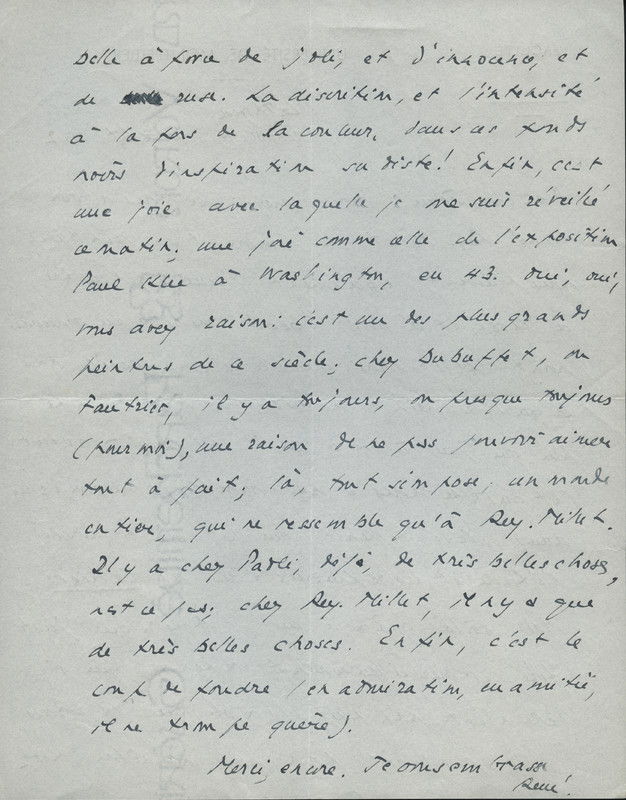 belle à force de joli, et d'innocence, et
de ruse. La discrétion, et l'intensité
à la fois de la couleur, dans ces fonds
noirs d'inspiration su diste! Enfin, c'est
une joie avec laquelle je me suis réveillé
ce matin; une joie comme celle de l'exposition
Paul Klee à Washington, en 43. Oui, oui,
vous avez raison: c'est un des plus grands
peintres de ce siècle; chez Dubuffet, ou
Fautrier, il y a toujours, ou presque toujours
(pour moi), une raison de ne pas pouvoir aimer
tout à fait; là, tout s'impose; un monde
entier, qui ne ressemble qu'à Rey-Millet.
Il y a chez Paoli, déjà, de très belles choses,
n'est ce pas; chez Rey-Millet, il n'y a que
de très belles choses. Enfin, c'est le
coup de foudre (en admiration, en amitié,
il ne trompe guère).
Merci, encore. Je vous embrasse
René.